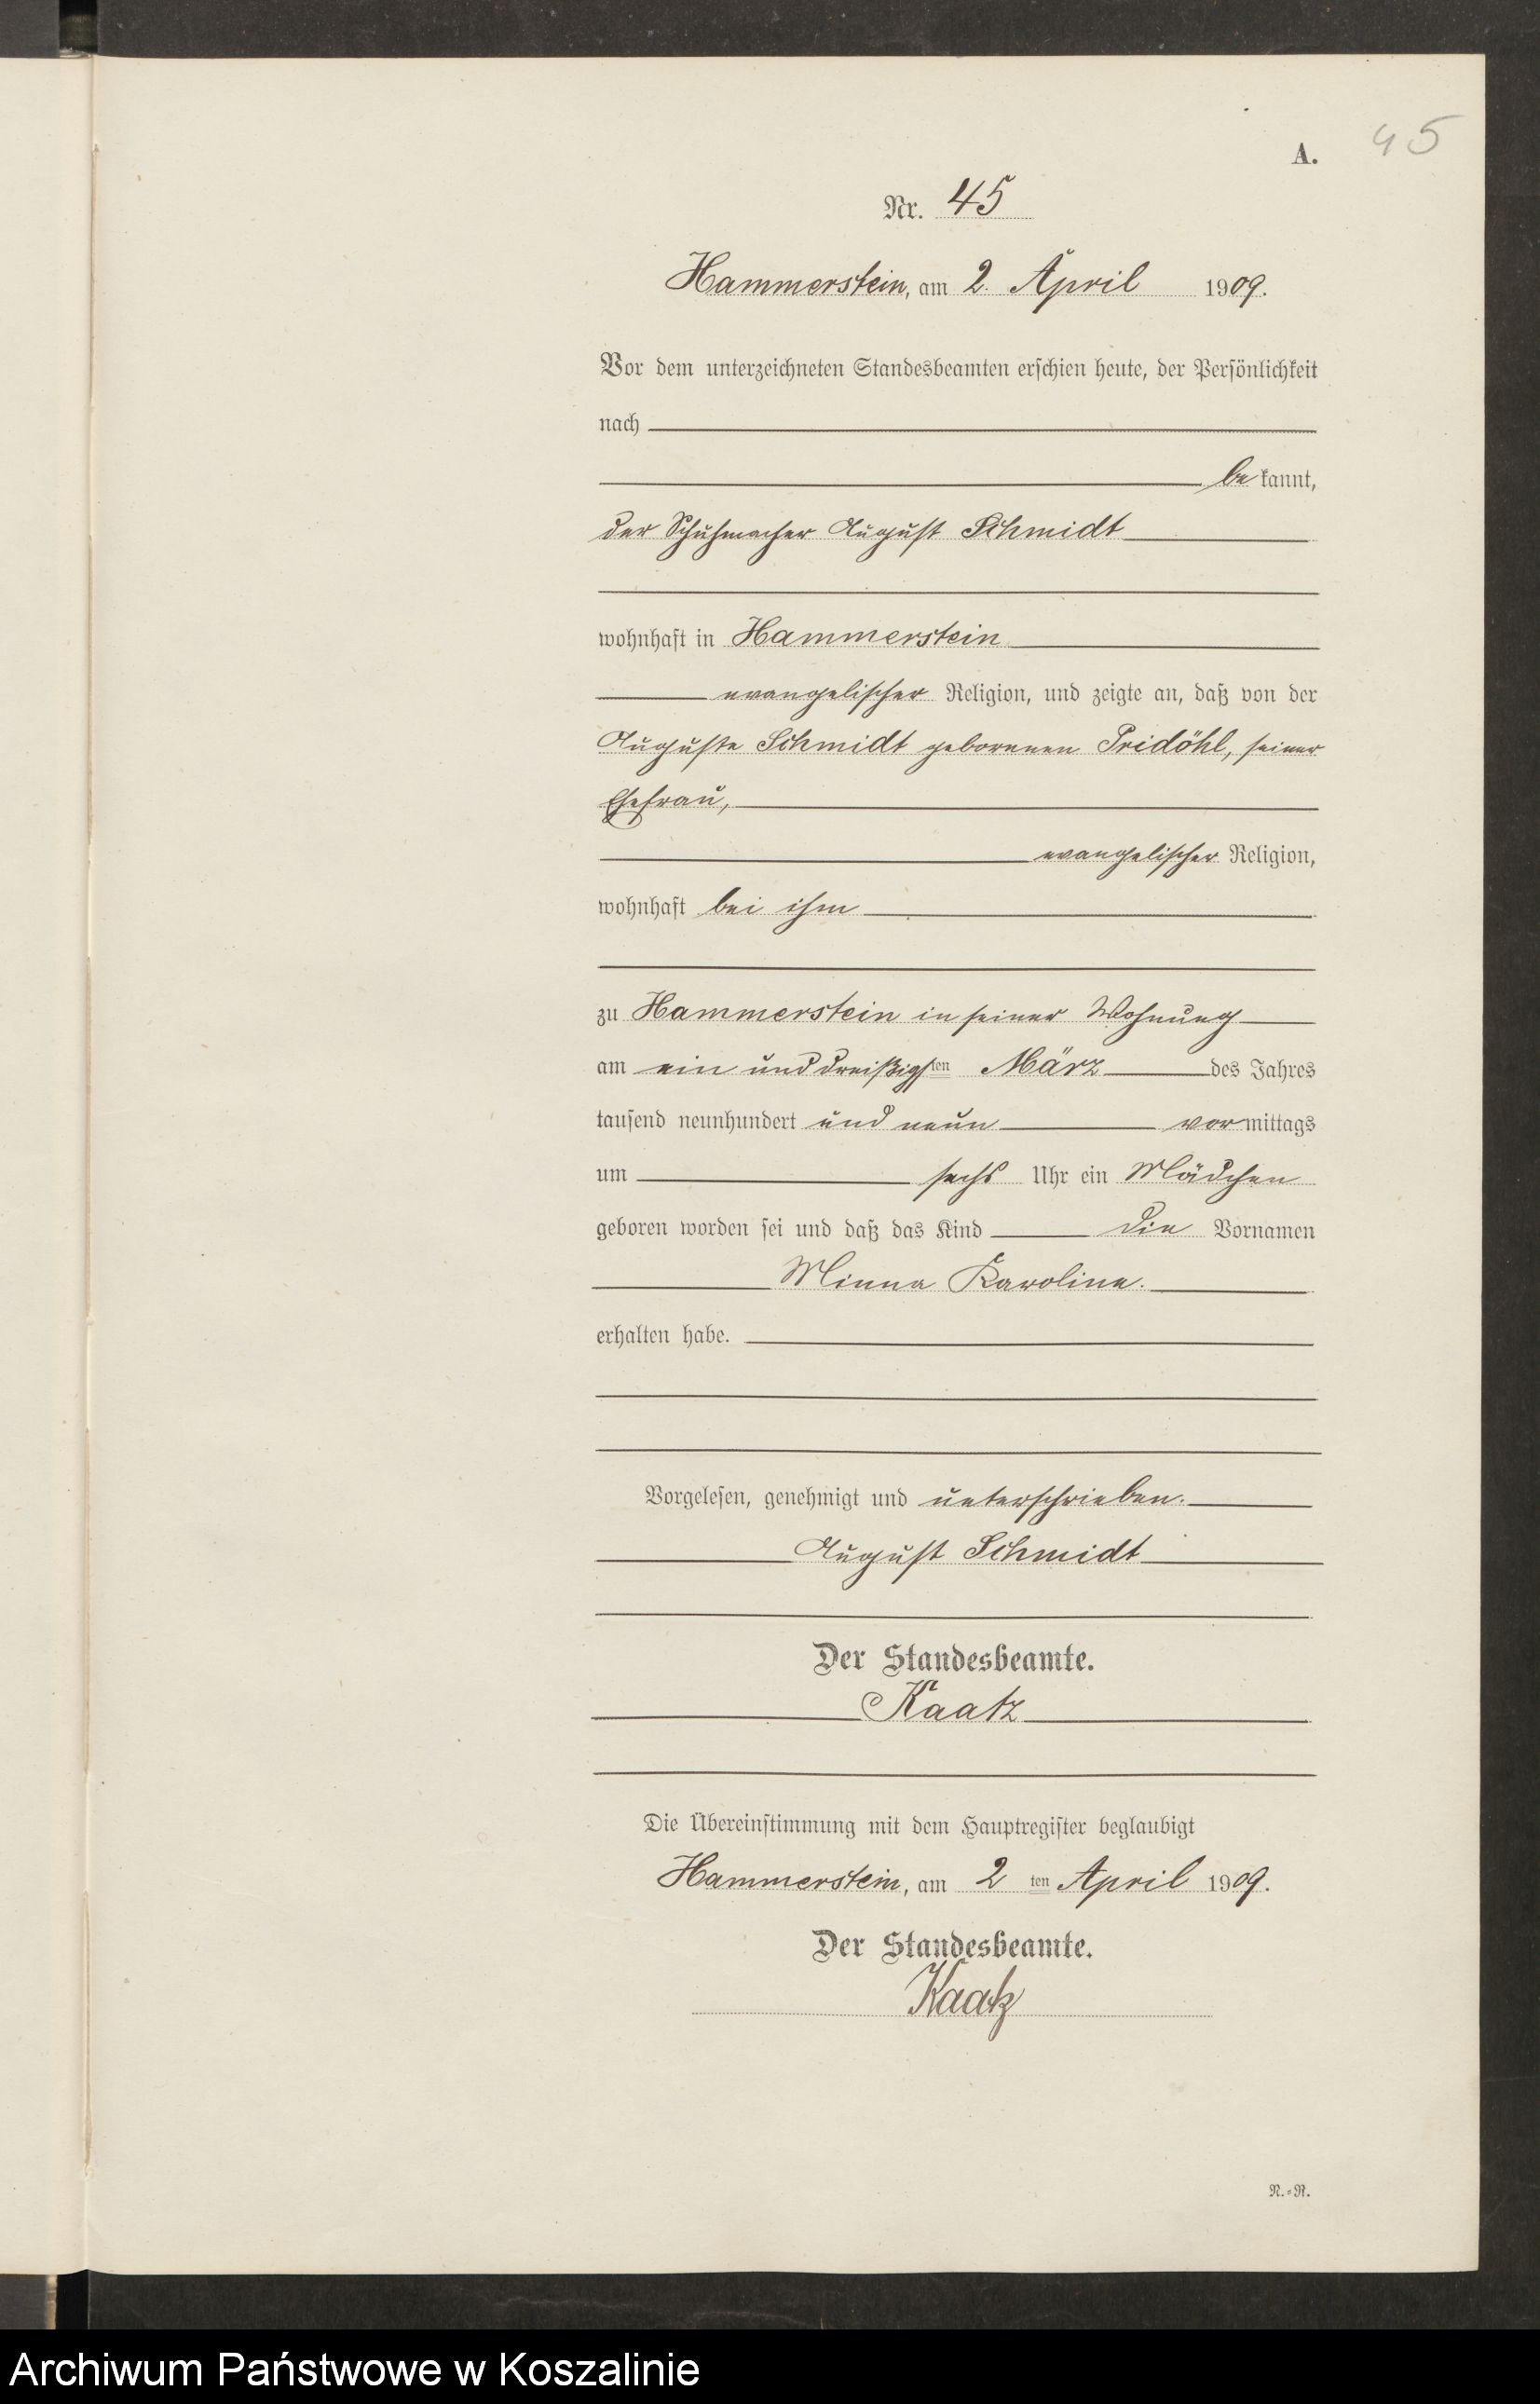 45
A.
Nr. 45
Hammerstein, am 2. April 1909.
Vor dem unterzeichneten Standesbeamten erschien heute, der Persönlichkeit
nach
be kannt,
der Schuhmacher August Schmidt
wohnhaft in Hammerstein
evangelischer Religion, und zeigte an, daß von der
Auguste Schmidt geborenen Pridöhl, seiner
Ehefrau,
evangelischer Religion,
wohnhaft bei ihm
zu Hammerstein in seiner Wohnung
am ein und dreißigsten März des Jahres
tausend neunhundert und neun vormittags
um sechs Uhr ein Mädchen
geboren worden sei und daß das Kind die Vornamen
Minna Karoline.
erhalten habe.
Vorgelesen, genehmigt und unterschrieben.
August Schmidt
Der Standesbeamte.
Kaatz
Die Übereinstimmung mit dem Hauptregister beglaubigt
Hammerstein, am 2 ten April 1909.
Der Standesbeamte.
Kaatz
N.=R.
Archiwum Państwowe w Koszalinie